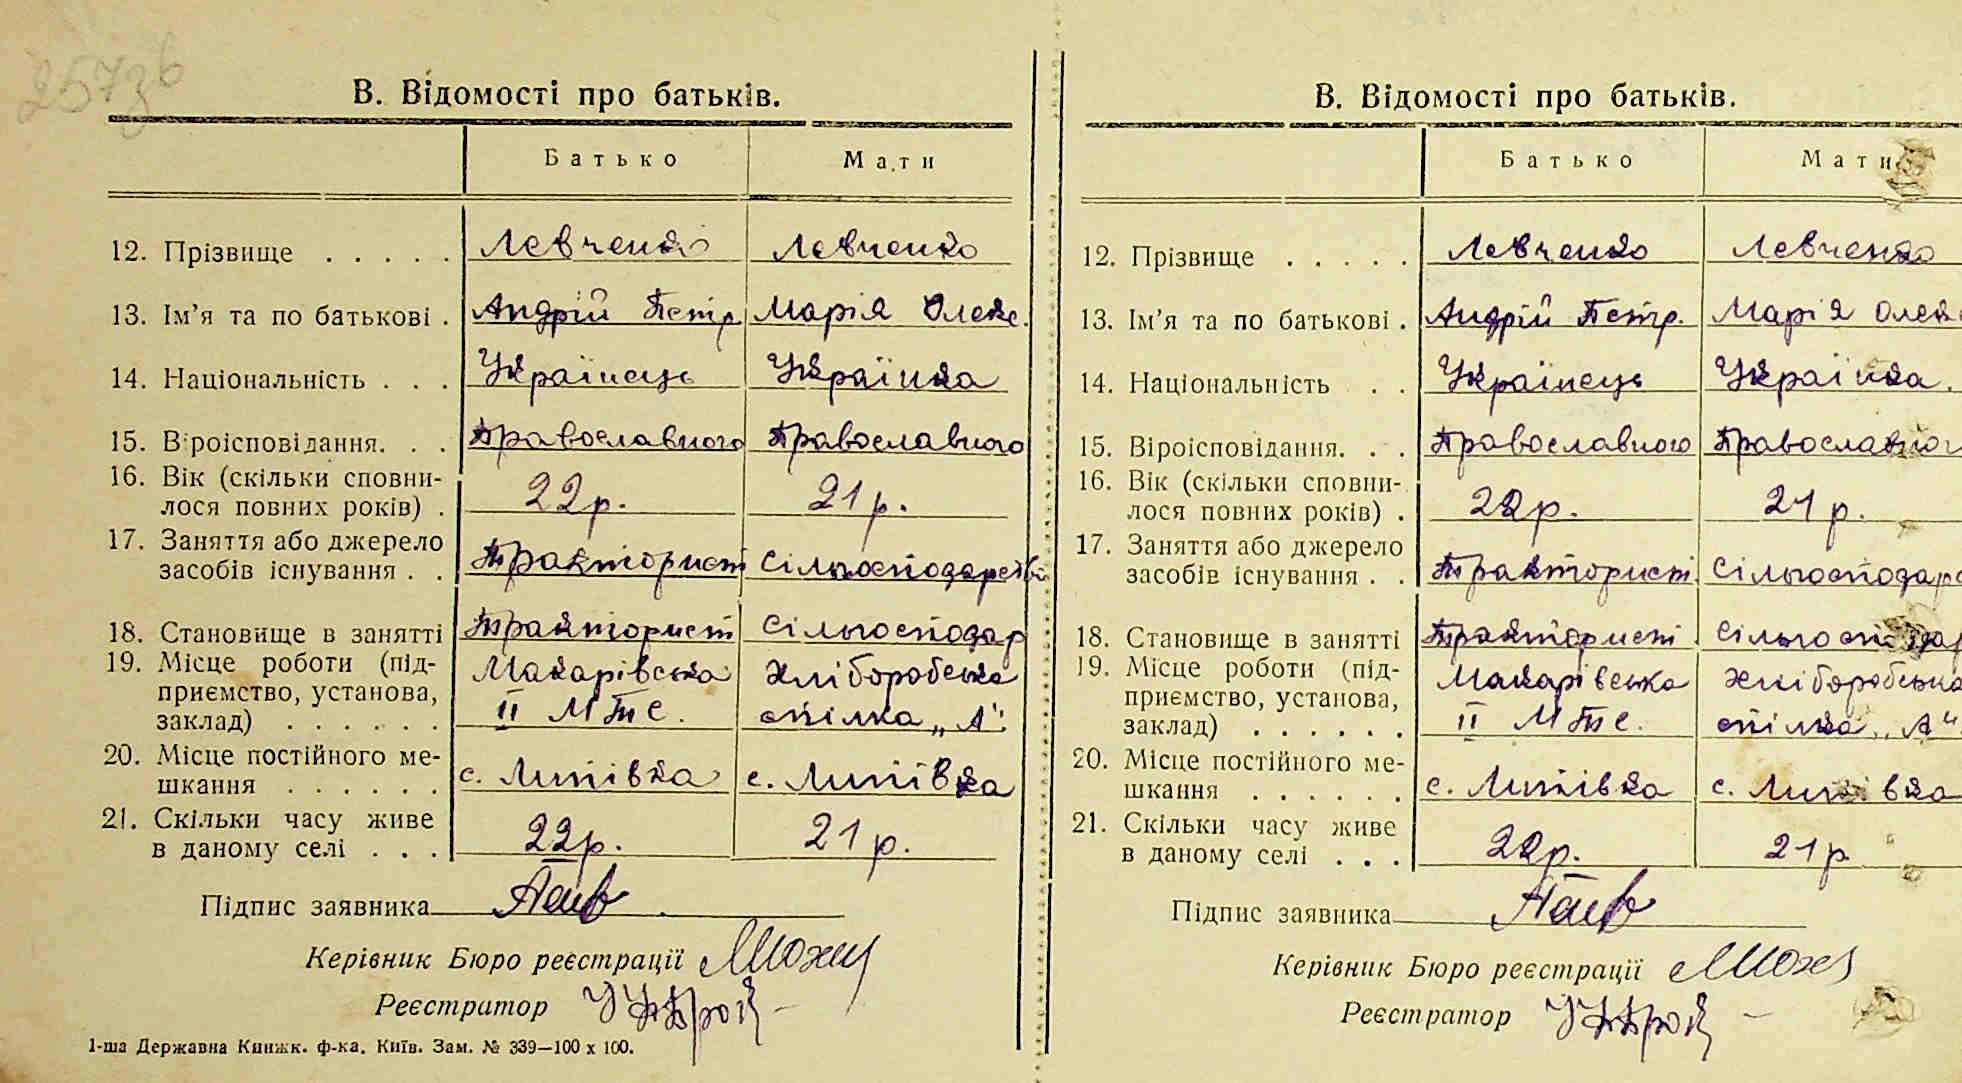 257зв
В. Відомості про батьків.
Батько Мати
12. Прізвище . . . . . Левченко Левченко
13. Ім’я та по батькові . Андрій Петр. Марія Олекс.
14. Національність . . . Українець Українка
15. Віроісповідання. . . Православного Православного
16. Вік (скільки сповни-
лося повних років) . 22 р. 21 р.
17. Заняття або джерело
засобів існування . . Тракторист Сільгосподарств
18. Становище в занятті Тракторист Сільгосподар
19. Місце роботи (під- Макарівська Хліборобська
приємство, установа,
заклад) . . . . . . ІІ МТС. спілка „А“.
20. Місце постійного ме-
шкання . . . . . . с. Липівка с. Липівка
21. Скільки часу живе
в даному селі . . . 22 р. 21 р.
Підпис заявника
Керівник Бюро реєстрації
Реєстратор
1-ша Державна Книжк. ф-ка. Київ. Зам. № 339—100 х 100.
В. Відомості про батьків.
Батько Мати
12. Прізвище . . . . . Левченко Левченко
13. Ім’я та по батькові . Андрій Петр. Марія Олекс
14. Національність . . Українець Українка.
15. Віроісповідання. . . Православного Православного
16. Вік (скільки сповни-
лося повних років) . 22 р. 21 р.
17. Заняття або джерело
засобів існування . . Тракторист Сільгосподарс
18. Становище в занятті Тракторист Сільгосподар
19. Місце роботи (під- Макарівська Хліборобська
приємство, установа,
заклад) . . . . . . ІІ МТС. спілка „А“.
20. Місце постійного ме-
шкання . . . . . . с. Липівка с. Липівка
21. Скільки часу живе
в даному селі . . . 22 р. 21 р
Підпис заявника
Керівник Бюро реєстрації
Реєстратор